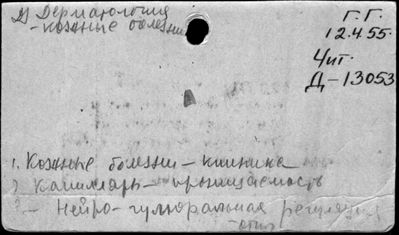 Дерматология
- кожные болезни
Г. Г.
12.4.55.
Чит.
Д-13053
1. Кожные болезни - клиника
2 Капилляры - проницаемость
3 - Нейро-гуморальная регуляция